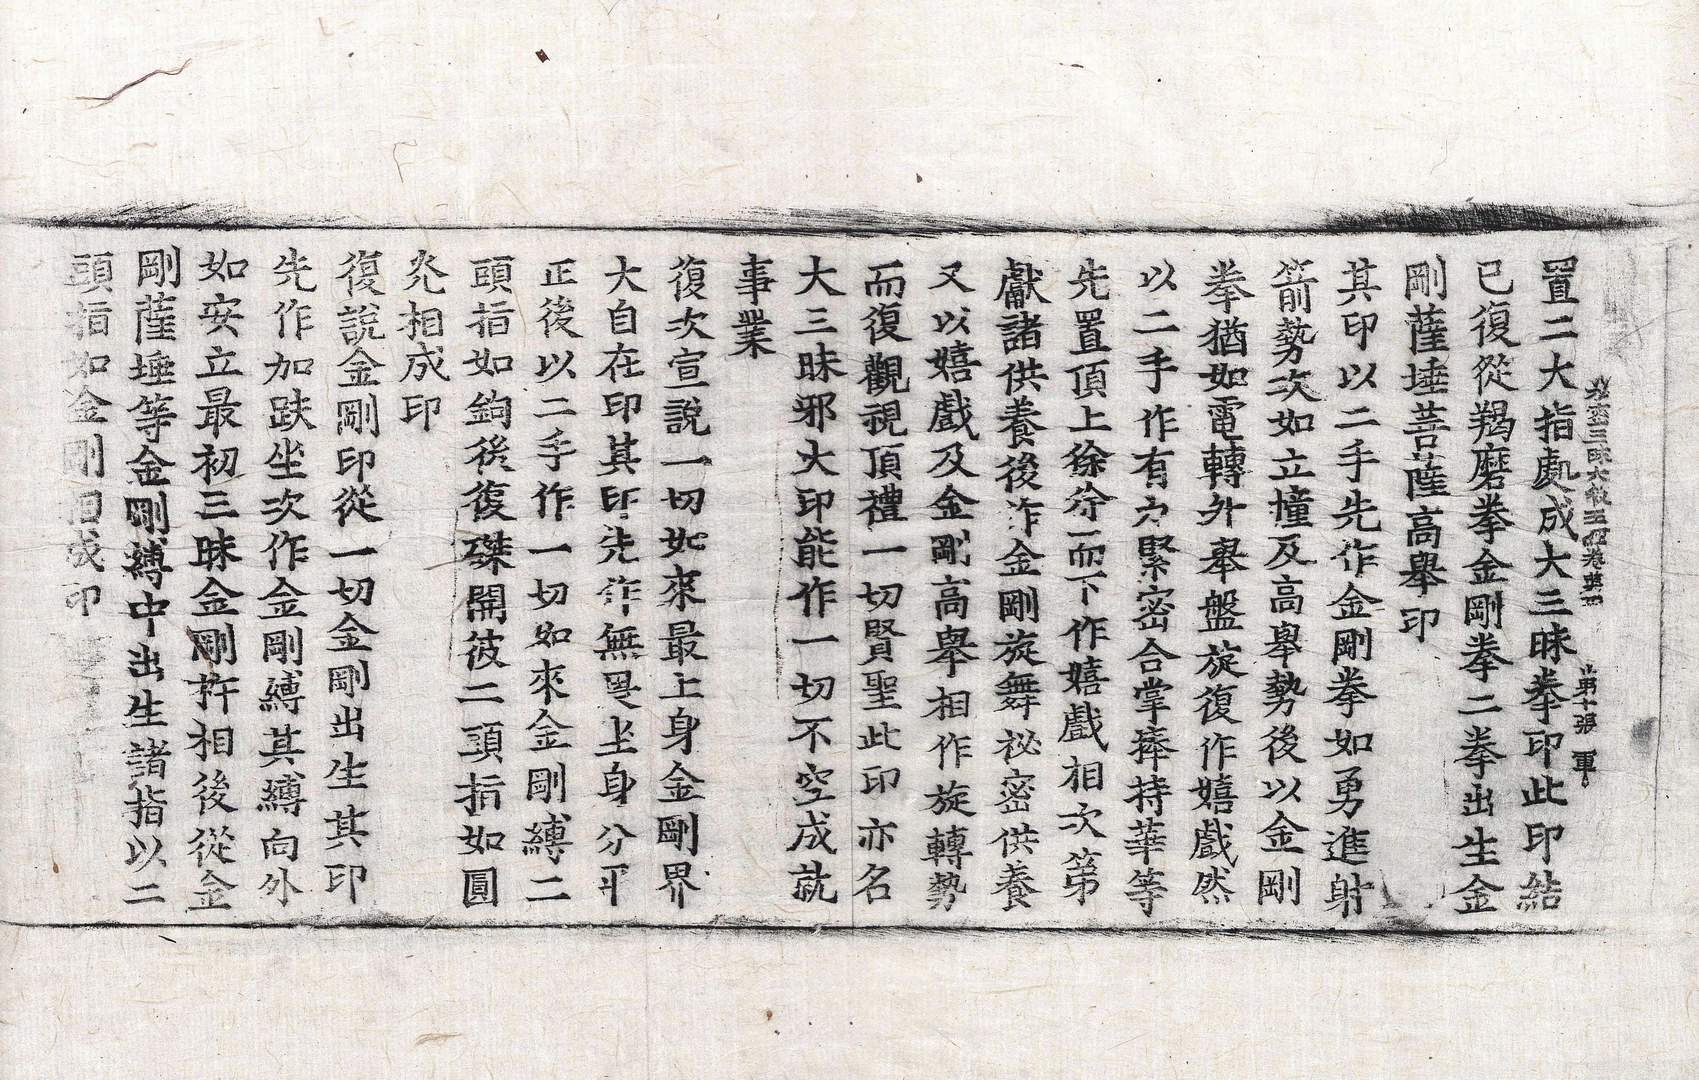 祕密三昧大教王經卷第四 第十張 軍
置二大指處成大三昧拳印此印結
已復從羯磨拳金剛拳二拳出生金
剛薩埵菩薩高舉印
其印以二手先作金剛拳如勇進射
箭勢次如立撞及高舉勢後以金剛
拳猶如電轉外舉盤旋復作嬉戲然
以二手作有力緊密合掌捧持華等
先置頂上徐徐而下作嬉戲相次第
獻諸供養後作金剛旋舞祕密供養
又以嬉戲及金剛高舉相作旋轉勢
而復觀視頂禮一切賢聖此印亦名
大三昧邪大印能作一切不空成就
事業
復次宣說一切如來最上身金剛界
大自在印其印先作無畏坐身分平
正後以二手作一切如來金剛縛二
頭指如鉤後復磔開彼二頭指如圓
光相成印
復說金剛印從一切金剛出生其印
先作加趺坐次作金剛縛其縛向外
如安立最初三昧金剛杵相後從金
剛薩埵等金剛縛中出生諸指以二
頭指如金剛相成印